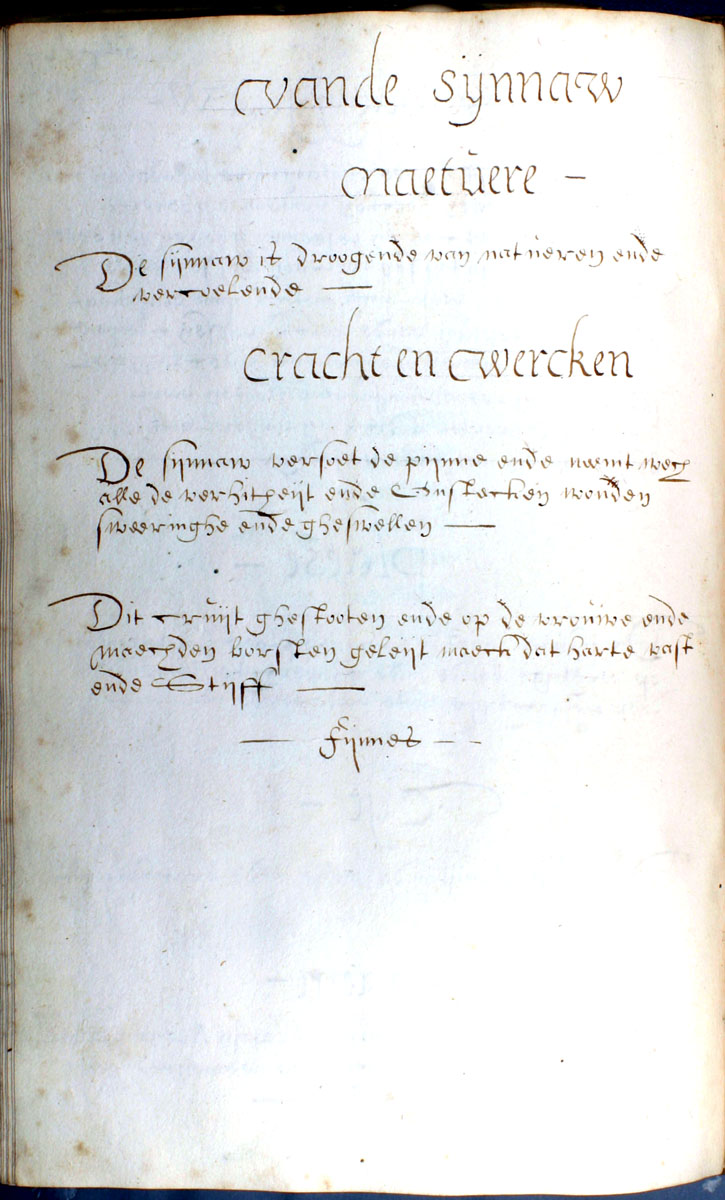 vande sÿnnaw
naetŭere –
De sijnnaw is droogende van natŭeren ende
vercoelende —
cracht en cwercken
De sijnnaw versoet de pijnne ende neemt wech
alle de verhitheijt ende wonden
sweeringhe ende gheswellen —
Dit crŭijt ghestooten ende op de vroŭwe ende
maechden borsten geleijt maeck dat harte vast
ende Stijff —
— fijnnes — –